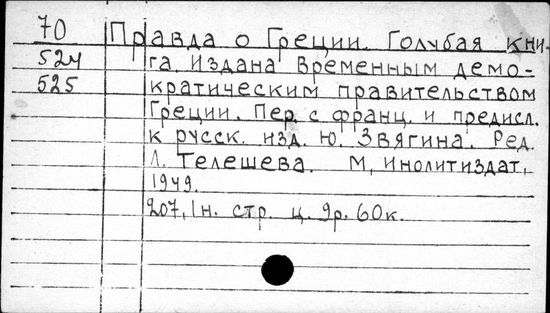 70 Правда о Греции. Голубая кни-
524 га. Издана Временным демо-
525 кратическим правительством
Греции. Пер. с франц. и предисл.
к русск. изд. Ю. Звягина. Ред.
Л. Телешева. М, Инолитиздат,
1949.
207, 1н. стр. ц. 9р. 60к.